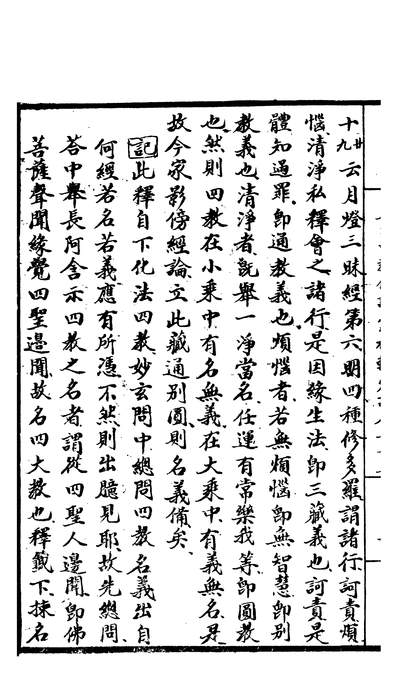 十廿九云月燈三昧經第六明四種修多羅謂諸行訶責煩
惱清淨私釋會之諸行是因緣生法卽三藏義也訶責是
體知過罪卽通教義也煩惱者若無煩惱卽無智慧卽別
教義也清淨者旣舉一淨當名任運有常樂我等卽圓教
也然則四教在小乘中有名無義在大乘中有義無名是
故今家影傍經論立此藏通別圓則名義備矣
記此釋自下化法四教妙玄問中總問四教名義出自
何經若名若義應有所憑不然則出臆見耶故先總問
答中舉長阿含示四教之名者謂從四聖人邊聞卽佛
菩薩聲聞緣覺四聖邊聞故名四大教也釋籤下揀名